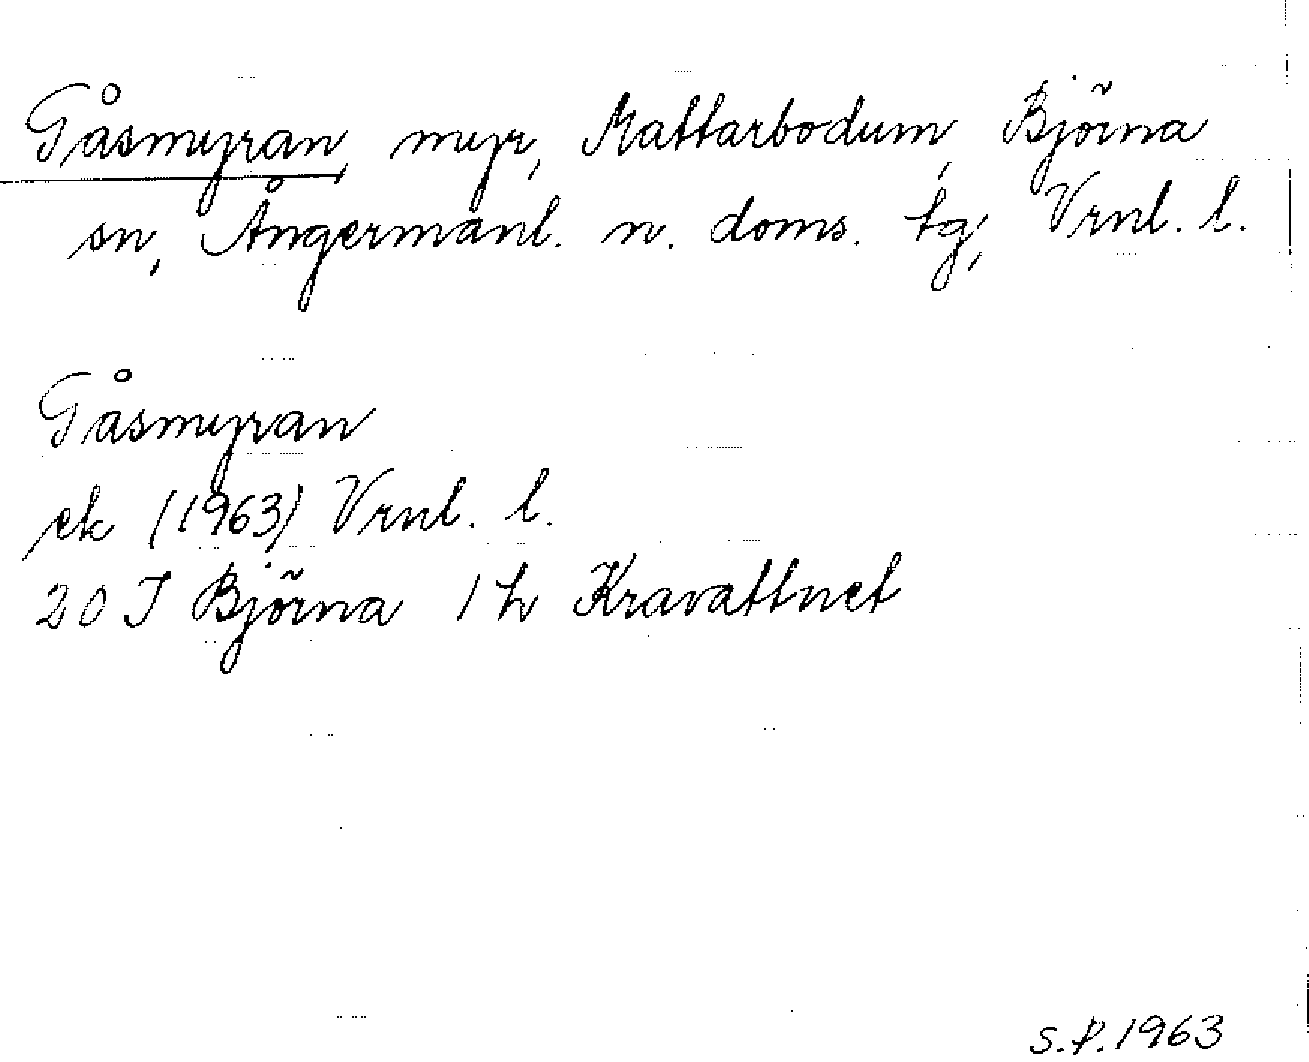 Gåsmyran, myr, Mattarbodum, Björna
sn, Ångermanl. n. doms. tg, Vrnl. l.
Gåsmyran
ek (1963) Vrnl. l.
20 I Björna 1 h Kravattnet
S.P. 1963